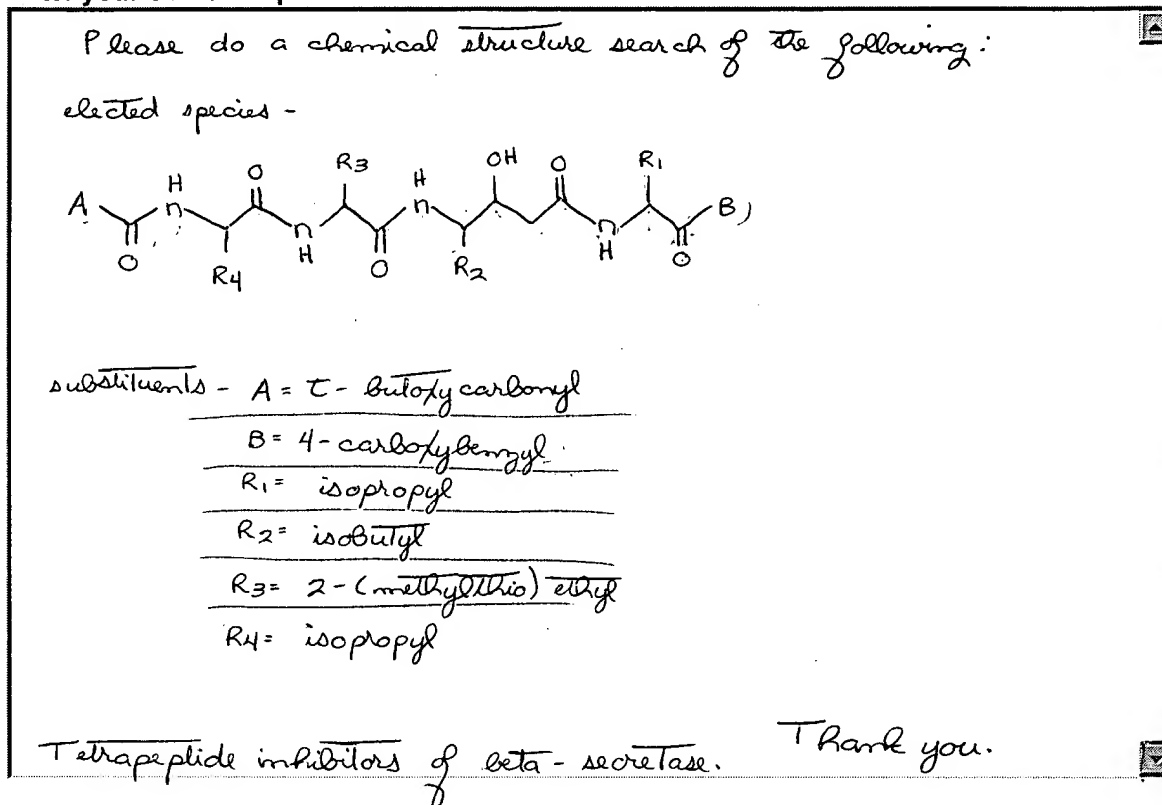 Please do a chemical structure search of the following:
elected species -
A H N O R3 H N OH O R1 B)
O R4 N H O R2 N H O
substituents - A = t - butoxycarbonyl
B = 4 - carboxybenzyl.
R1 = isopropyl
R2 = isobutyl
R3 = 2 - (methylthio) ethyl
R4 = isopropyl
Tetrapeptide inhibitors of beta - secretase.
Thank you.